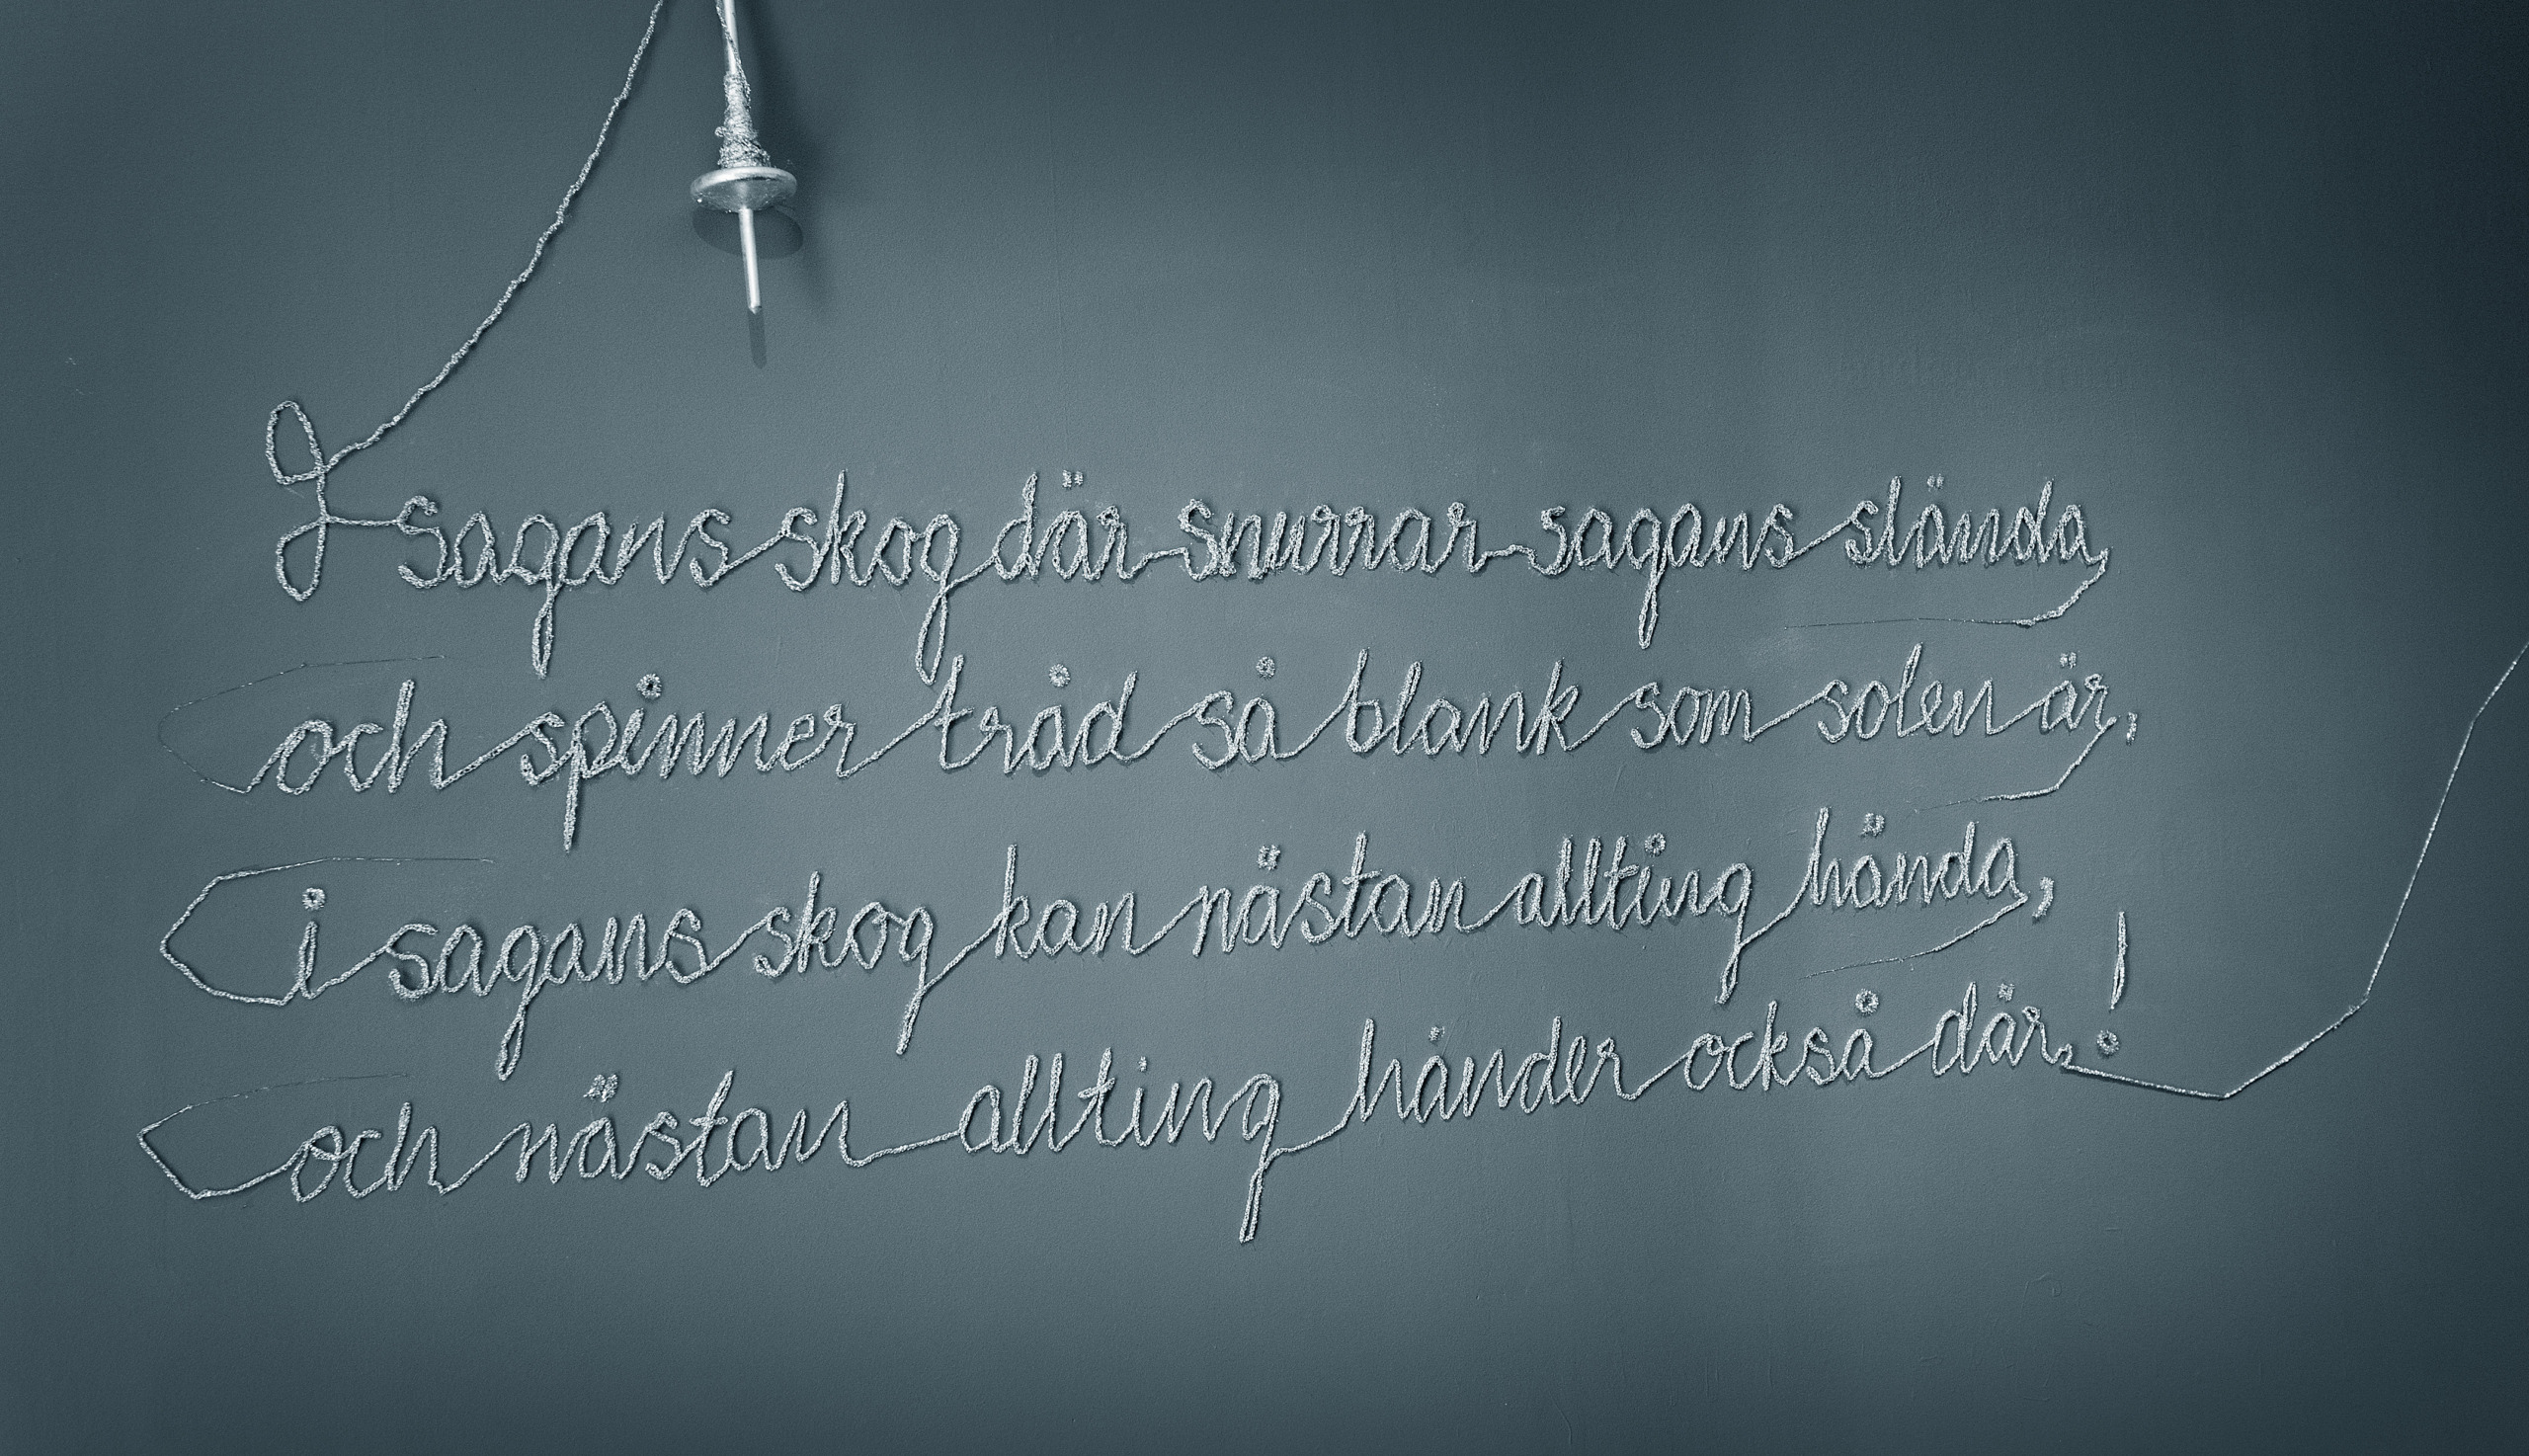 I sagans skog där snurrar sagans slända
och spinner tråd så blank som solen är,
i sagans skog kan nästan allting hända,
och nästan allting händer också där!